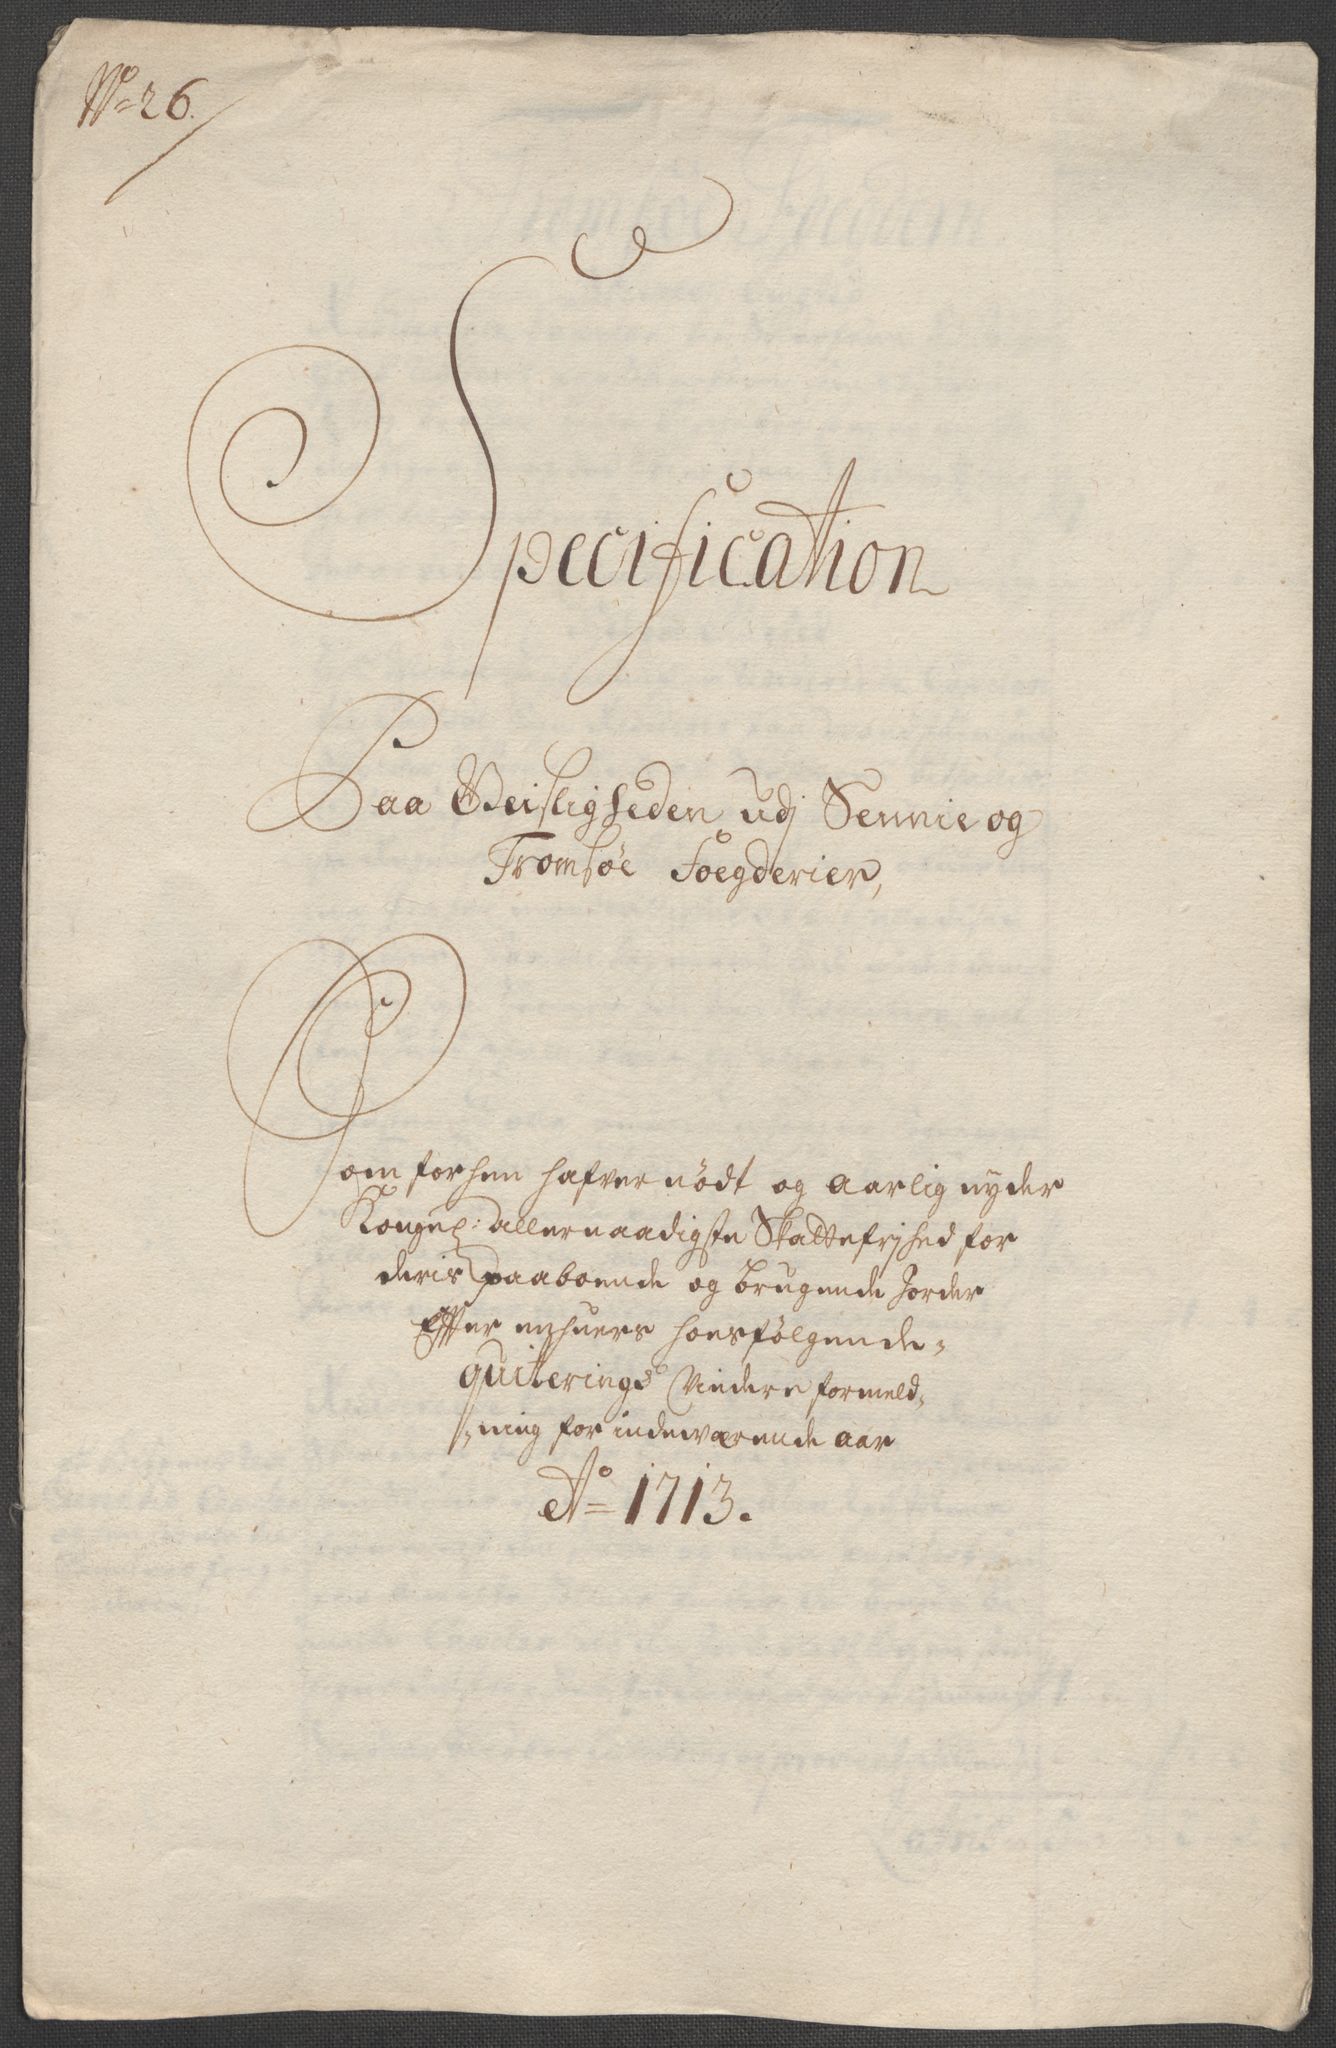 No 26.
Specification
Paa Geisligheden udj Sennie og
Tromsøe Foegderier,
Som forhen hafver nödt og aarlig nyder
Kongel: allernaadigste Skattefrjhed for
deris paaboende og brugende Jorder
Effter enhuers hoesfölgende
quiterings Videre formeld-
-ning for indeværende aar
Ao 1713.